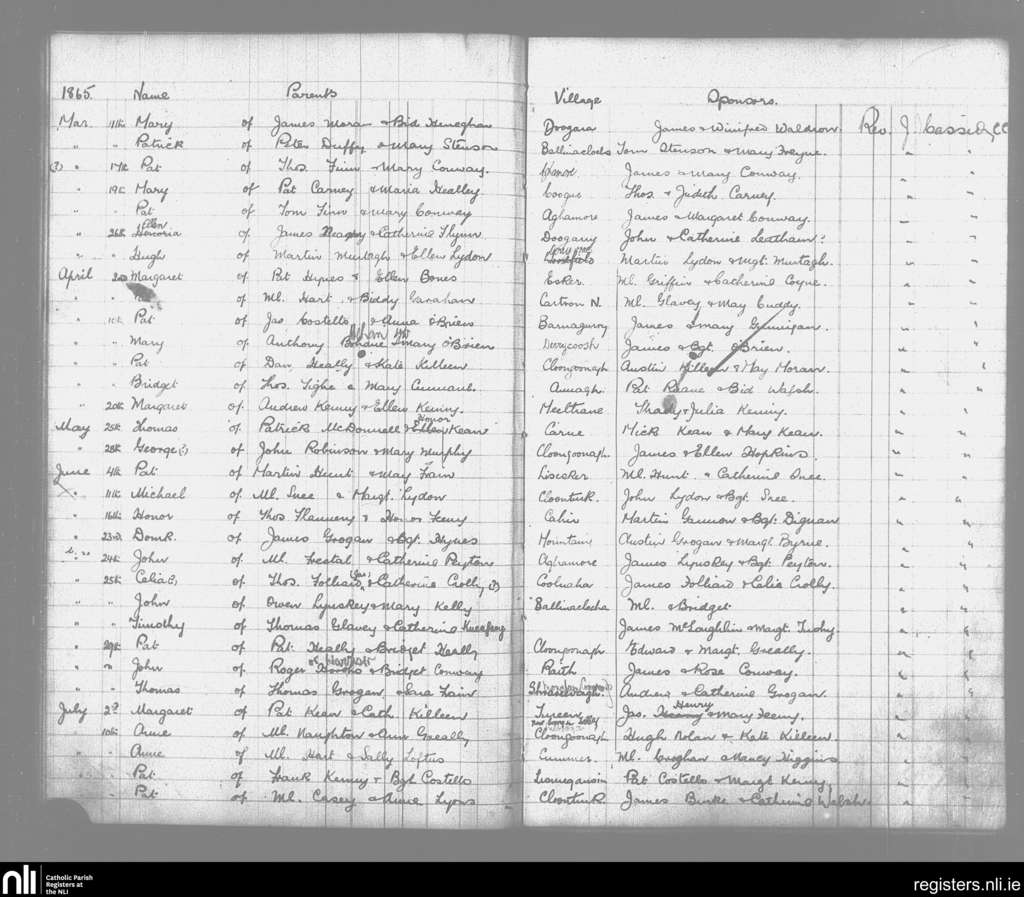 1865. Name Parents Village Sponsors.
Mar. 11th Mary of James Moran & Bid Heneghan Doogara James & Winifred Waldron Rev. J. Cassidy CC
" " Patrick of Peter Duffy & Mary Stenson Ballinaclocha Tom Stenson & Mary Freyne. " "
(?) " 17th Pat of Thos. Finn & Mary Conway. James & Mary Conway. " "
" 19th Mary of Pat Carney & Maria Healley Coogue Thos. & Judith Carney. " "
" " Pat of Tom Finn & Mary Conway Aghamore James & Margaret Conway. " "
Ellen
" 26th Honoria of James & Catherine Flynn Doogany John & Catherine Leatham? " "
" " Hugh of Martin Murtagh & Ellen Lydon Martin Lydon & Mgt. Murtagh. " "
April 2nd Margaret of Pat Hynes & Ellen Bones Esker Ml. Griffin & Catherine Coyne. " "
" " of Ml. Hart & Biddy Garahan Cartron N. Ml. Glavey & May Cuddy. " "
" 10th Pat of Jas. Costello & Anna O'Brien Barnaguroy James & Mary Grunigan. " "
" " Mary of Anthony & Mary O'Brien Derrycoosh James & Bgt. O'Brien. " "
" " Pat of Dan. Healy & Kate Killeen Cloongonagh Austin Killeen & May Moran. " "
" " Bridget of Thos. Tighe & Mary Cunnane. Annagh Pat Ruane & Bid Walsh. " "
" 20th Margaret of Andrew Kenny & Ellen Kenny. Meeltrane Thady & Julia Kenny. " "
Honor
May 25th Thomas of Patrick McDonnell & Ellen Kean Carne Mick Kean & Mary Kean. " "
" 28th George(?) of John Robinson & Mary Murphy Cloongonagh James & Ellen Hopkins. " "
June 4th Pat of Martin Hunt & May Frain Lisesker Ml. Hunt & Catherine Snee. " "
" 11th Michael of Ml. Snee & Margt. Lydon Cloonturk. John Lydon & Bgt. Snee. " "
" 16th Honor of Thos Flannery & Honor Feeny Cahir Martin Gannon & Bgt. Dignan " "
" 23rd Domk. of James Grogan & Bgt. Hynes Mountain Austin Grogan & Margt. Byrne. " "
" 24th John of Ml. Freatal & Catherine Peyton Aghamore James Lynskey & Bgt. Peyton. " "
" 25th Celia(?) of Thos. Folliard & Catherine Crolly (?) Cooluaha James Folliard & Celia Crolly. " "
" " John of Owen Lynskey & Mary Kelly Ballinaclocha Ml. & Bridget " "
" " Timothy of Thomas Glavey & Catherine James McLaughlin & Margt. Tuohy " "
" 29th Pat of Pat. Healy & Bridget Healy Cloongonagh Edward & Margt. Greally. " "
" " John of Roger & Bridget Conway Raith James & Rose Conway. " "
" " Thomas of Thomas Grogan & Sara Frain Andrew & Catherine Grogan. " "
Henry
July 2nd Margaret of Pat Kean & Cath. Killeen Tureen Jas. & Mary Feeny. " "
" 10th Anne of Ml. Naughton & Ann Greally Cloongonagh Hugh Nolan & Kate Killeen. " "
" " Anne of Ml. Hart & Sally Loftus Cummer. Ml. Croghan & Nancy Higgins " "
" " Pat of Frank Kenny & Bgt Costello Pat Costello & Margt Kenny. " "
" " Pat of Ml. Casey & Anne Lyons Cloonturk James Burke & Catherine Walsh. " "
nli
Catholic Parish
Registers at
the NLI
registers.nli.ie